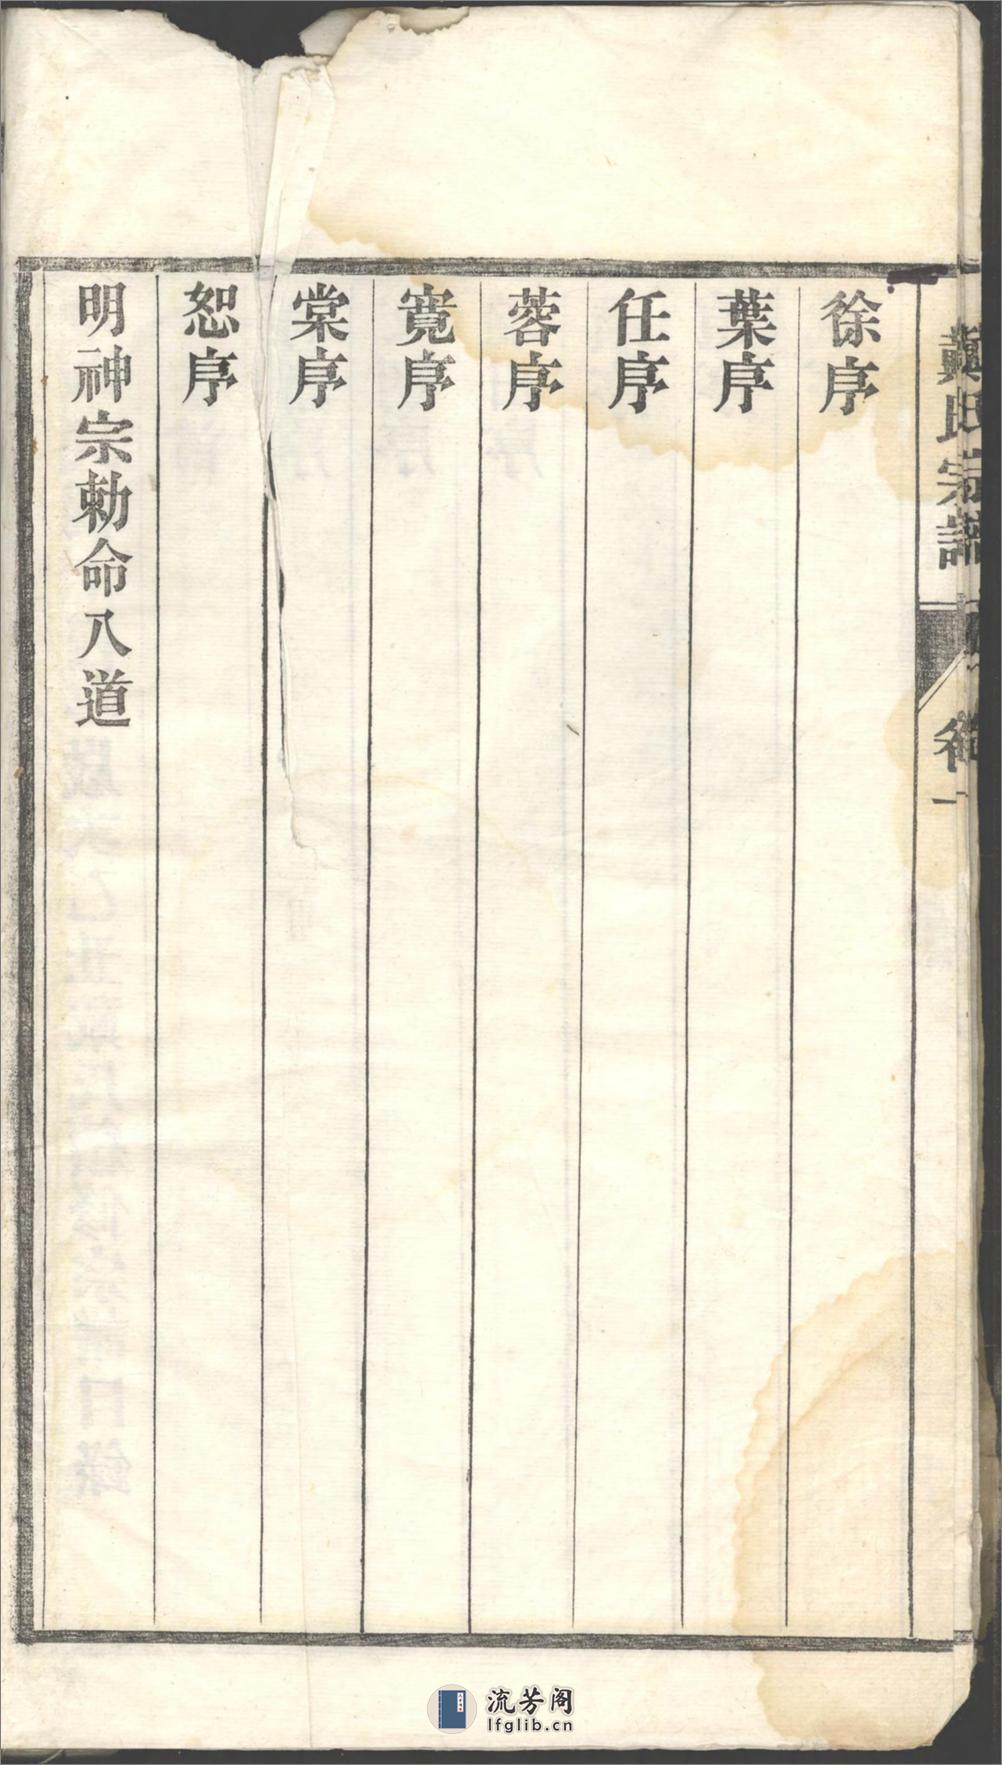 戴氏宗譜
卷一
徐序
葉序
任序
蓉序
寬序
棠序
恕序
明神宗勅命八道
流芳阁
lfglib.cn